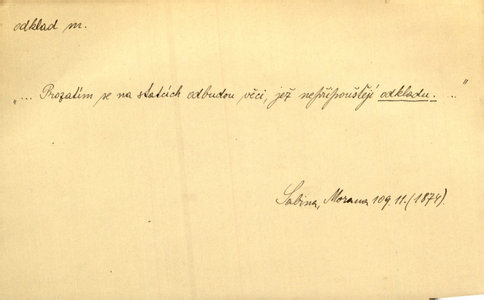 odklad m.
„... Prozatím se na statcích odbudou věci, jež nepřipouštějí odkladu. ..."
Sabina, Morana 109.11.(1874).